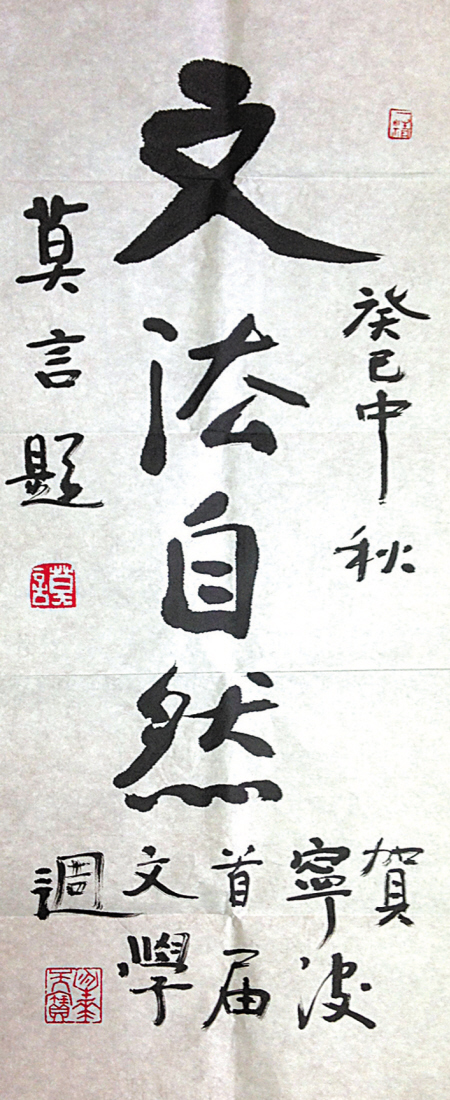 癸巳中秋
文法自然
莫言題
賀
寧波
首届
文學
週
莫言